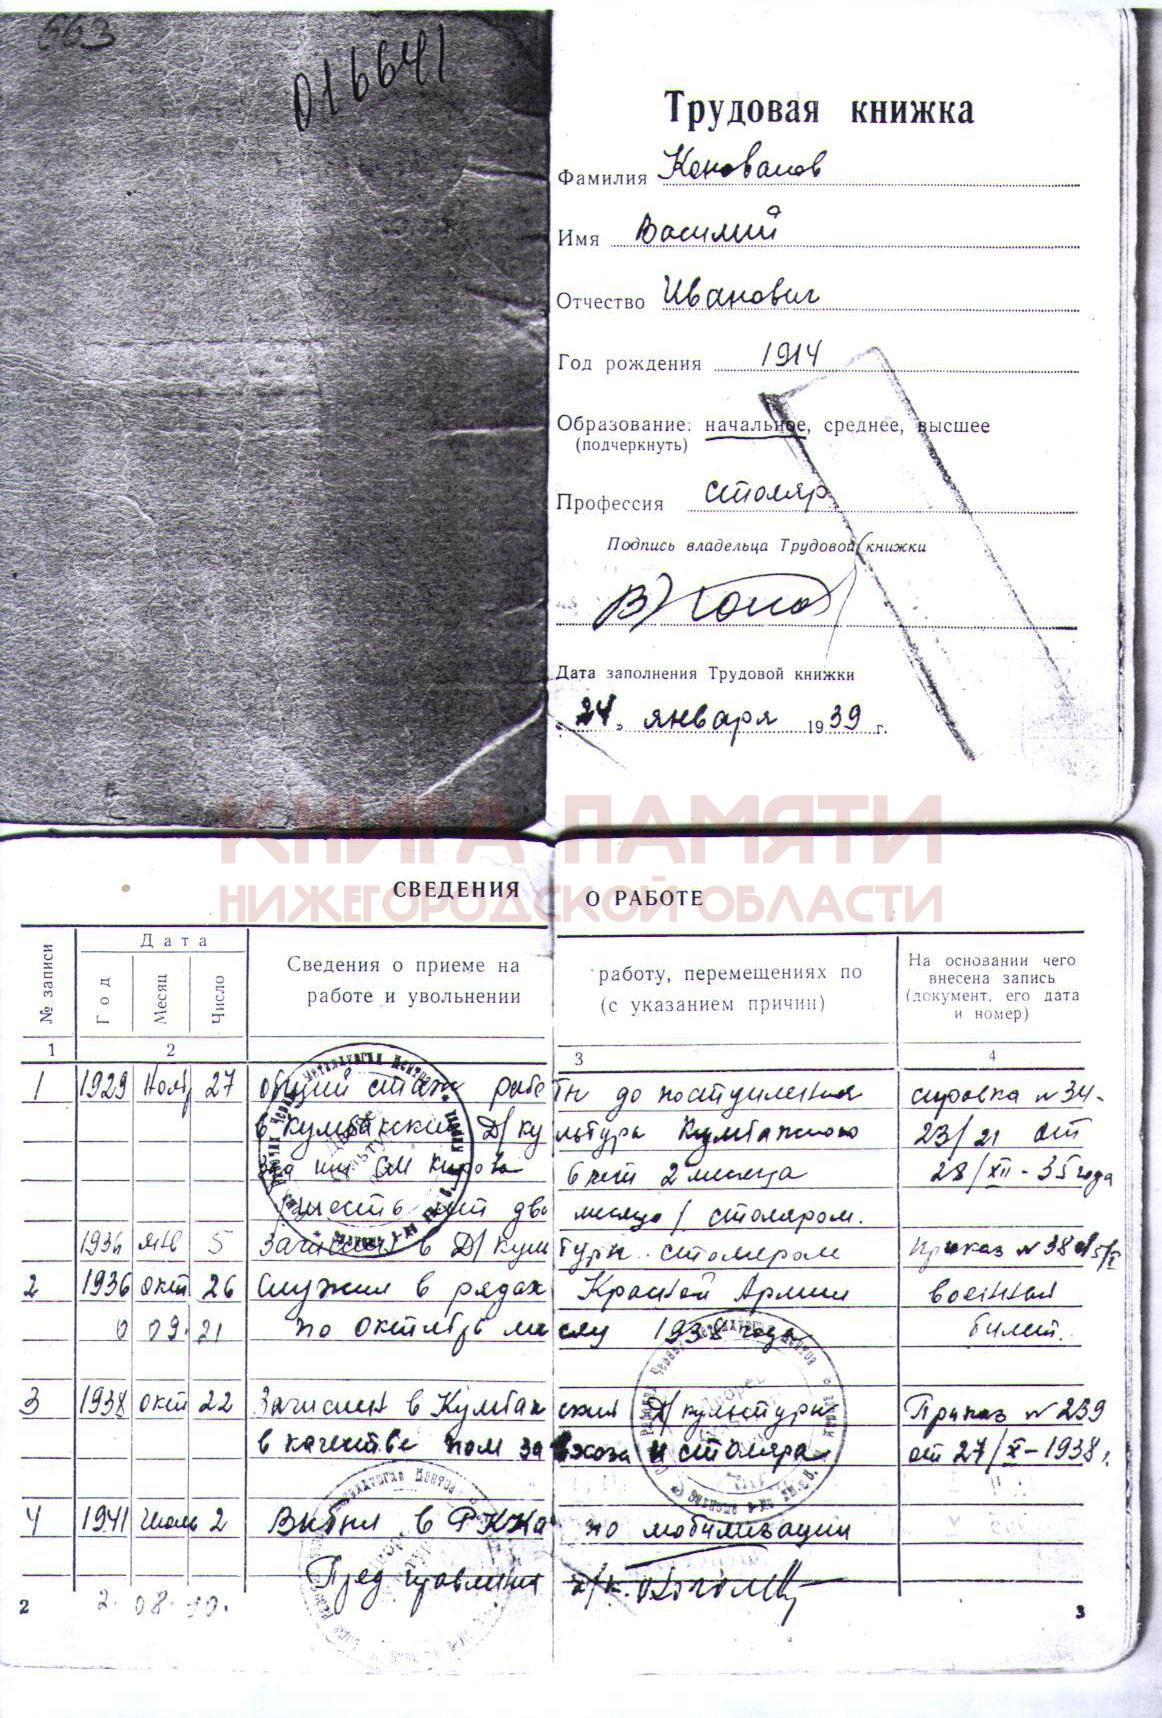 563
016641
Трудовая книжка
Фамилия Коновалов
Имя Василий
Отчество Иванович
Год рождения 1914
Образование: начальное, среднее, высшее
(подчеркнуть)
Профессия столяр
Подпись владельца Трудовой книжки
Дата заполнения Трудовой книжки
„24" января 1939 г.
КНИГА ПАМЯТИ
НИЖЕГОРОДСКОЙ ОБЛАСТИ
СВЕДЕНИЯ О РАБОТЕ
№ записи
Дата
Год
Месяц
Число
Сведения о приеме на работу, перемещениях по
работе и увольнении (с указанием причин)
На основании чего
внесена запись
(документ, его дата
и номер)
1 2 3 4
1 1929 Нояб 27 общий стаж работы до поступления справка № 34-
в Д/культуры 23/21 от
6 лет 2 месяца 28/XII-35 года
шесть лет два месяца/ столяром.
1936 янв 5 Зачислен в Д/культуры столяром Приказ № 38
2 1936 окт 26 Служил в рядах Красной Армии военный
09. 21 по октябрь месяц 1938 года билет.
3 1938 окт 22 Зачислен в Д/культуры Приказ № 239
в качестве пом завхоза и столяра от 27/X-1938 г.
4 1941 2 Выбыл в РККА по мобилизации
Пред правления
2 3